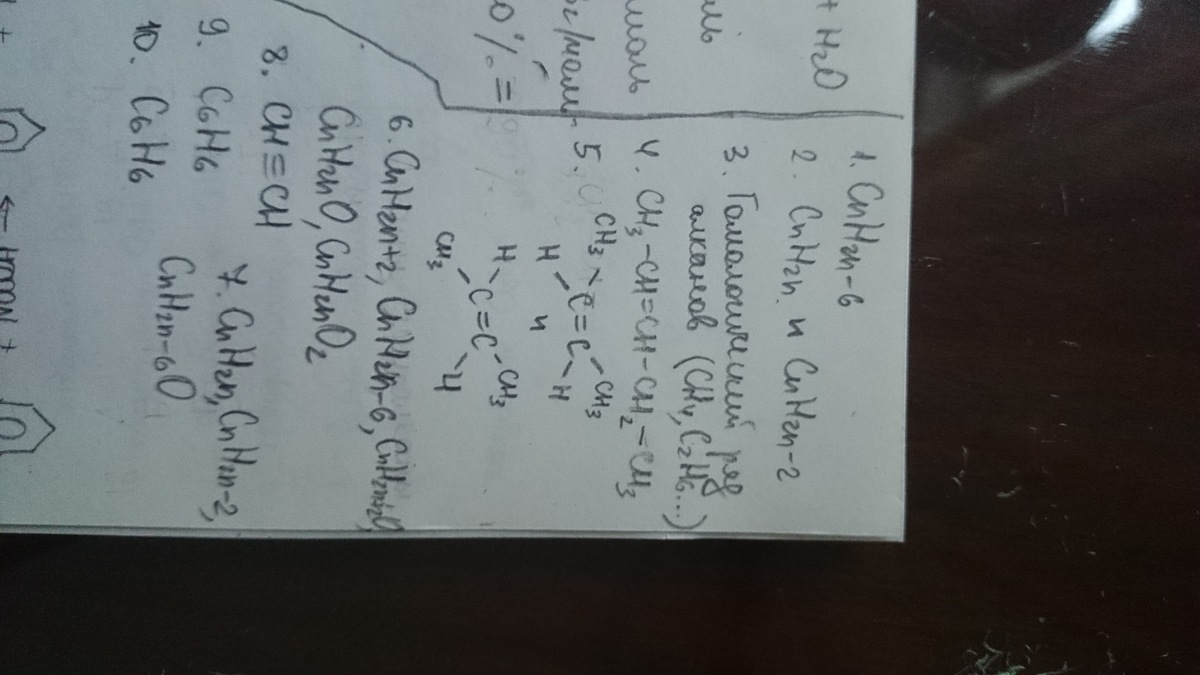 + H2O
ль
ммоль
г/моль
0% =
1. CnH2n-6
2. CnH2n и CnH2n-2
3. Гомологический ряд
алканов (CH4, C2H6...)
4. CH3-CH=CH-CH2-CH3
5.
CH3 CH3
C=C
H H
и
H CH3
C=C
CH3 H
6. CnH2n+2, CnH2n-6, CnH2n+2O,
CnH2nO, CnH2nO2
7. CnH2n, CnH2n-2,
CnH2n-6O
8. CH≡CH
9. C6H6
10. C6H6
+ ← +